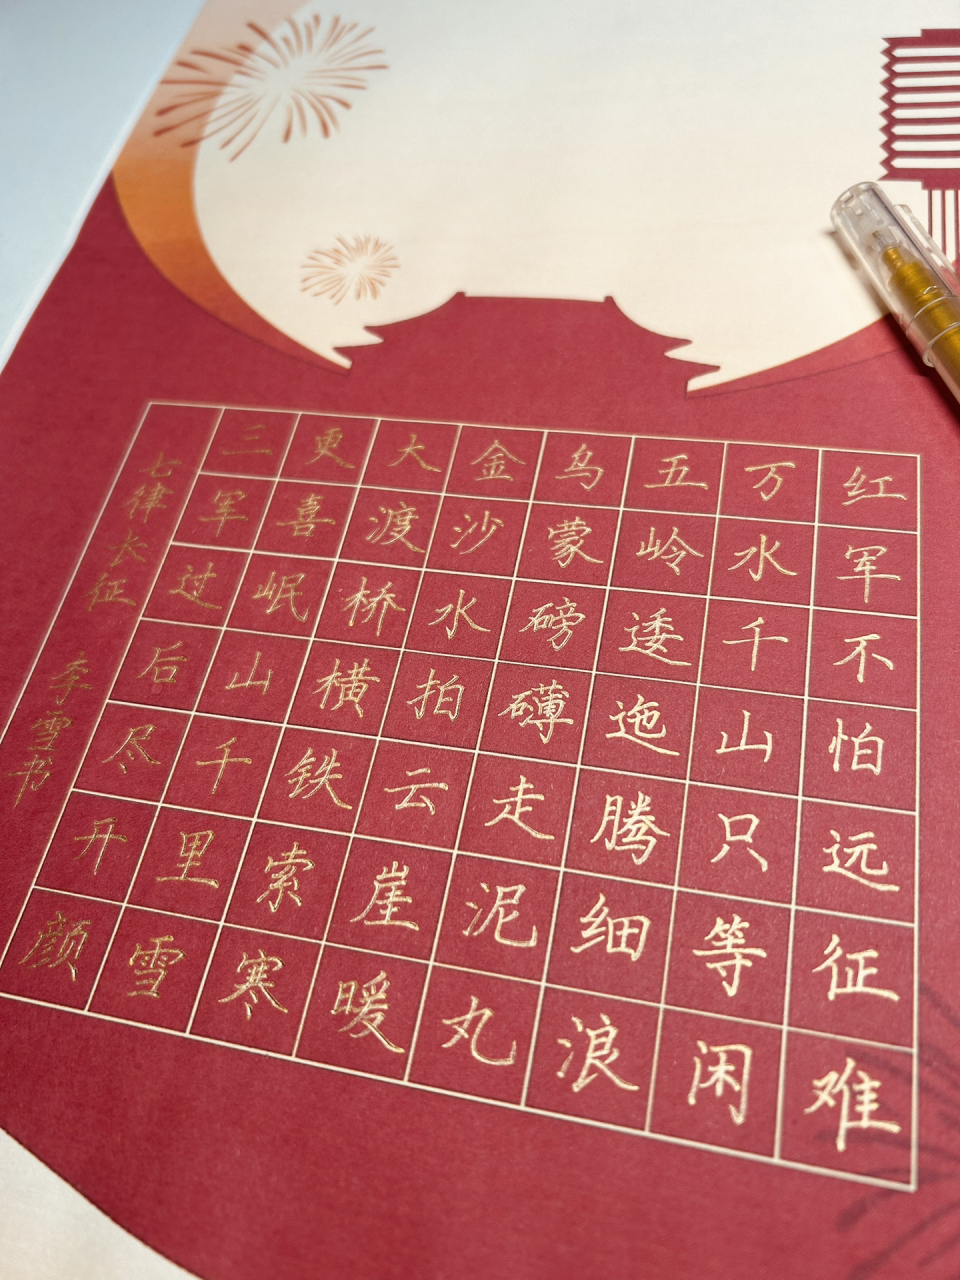 红军不怕远征难
万水千山只等闲
五岭逶迤腾细浪
乌蒙磅礴走泥丸
金沙水拍云崖暖
大渡桥横铁索寒
更喜岷山千里雪
三军过后尽开颜
七律长征 李雪书